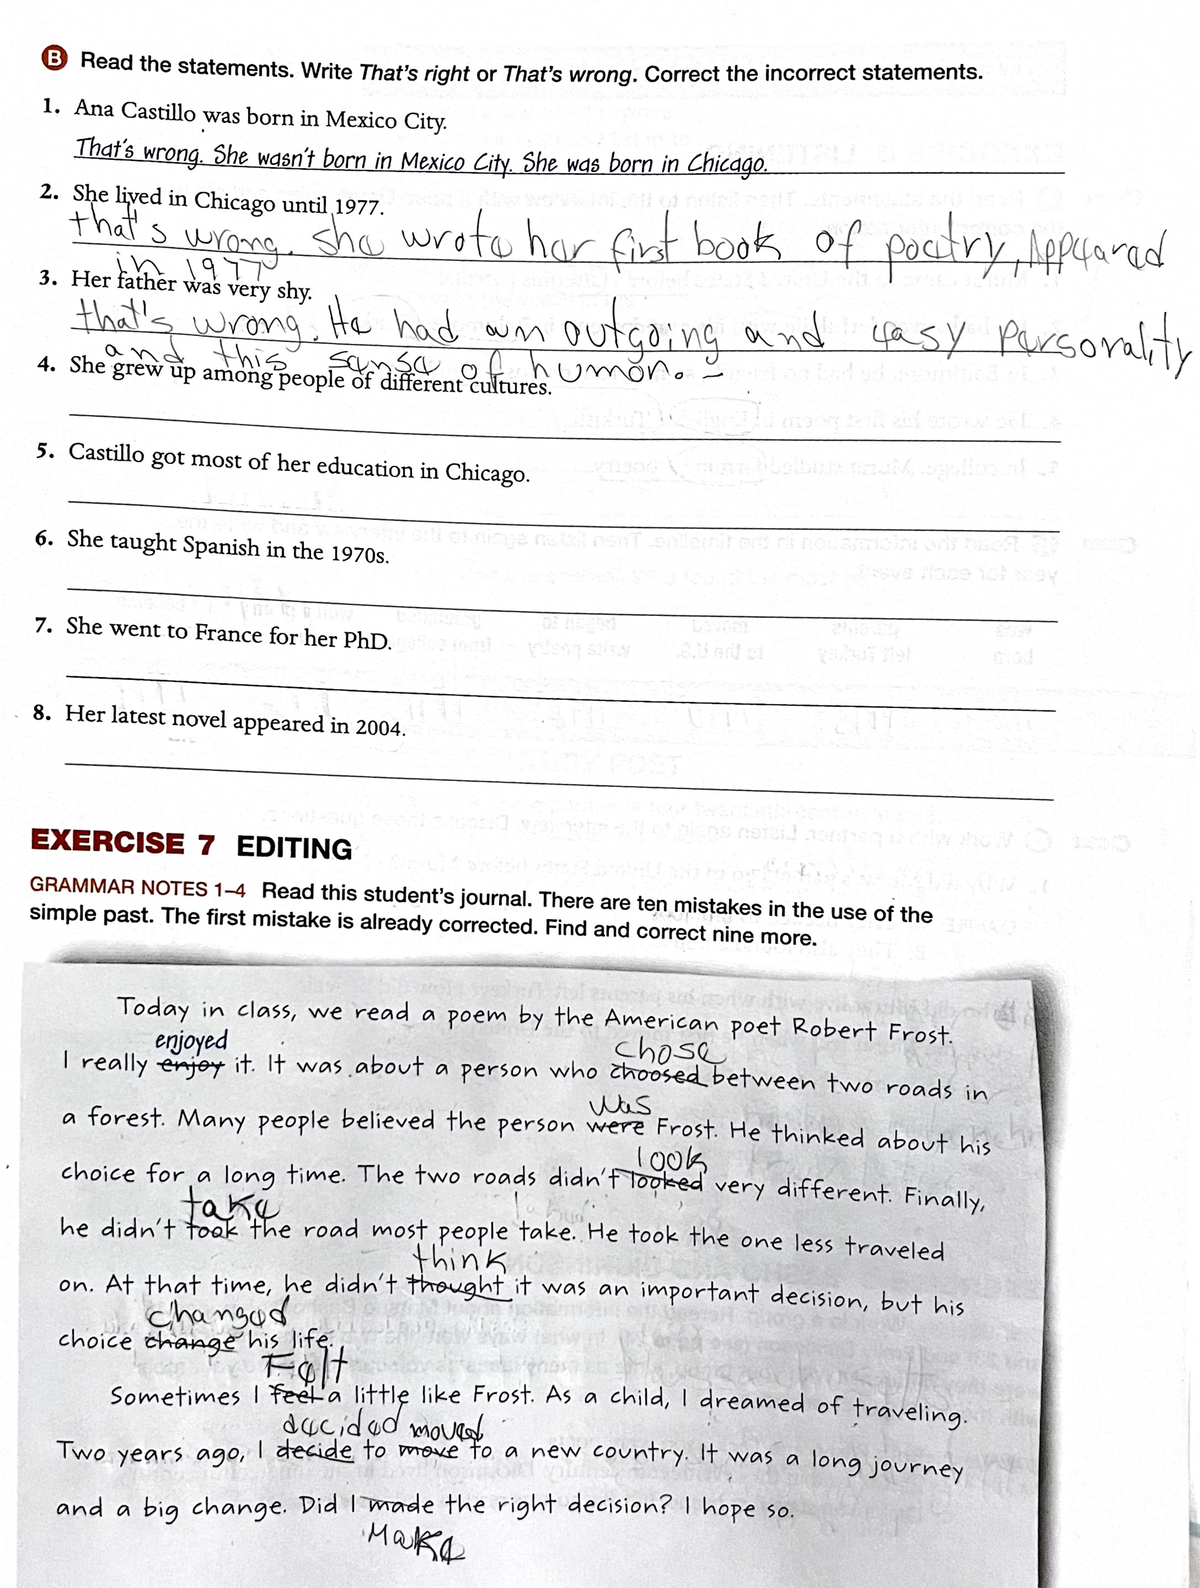 B Read the statements. Write That's right or That's wrong. Correct the incorrect statements.
1. Ana Castillo was born in Mexico City.
That's wrong. She wasn't born in Mexico City. She was born in Chicago.
2. She lived in Chicago until 1977.
that's wrong. she wrote her first book of poetry, Appeared
in 1977
3. Her father was very shy.
that's wrong. He had an outgoing and easy Personality
and this sense of humor.
4. She grew up among people of different cultures.
5. Castillo got most of her education in Chicago.
6. She taught Spanish in the 1970s.
7. She went to France for her PhD.
8. Her latest novel appeared in 2004.
EXERCISE 7 EDITING
GRAMMAR NOTES 1–4 Read this student's journal. There are ten mistakes in the use of the
simple past. The first mistake is already corrected. Find and correct nine more.
Today in class, we read a poem by the American poet Robert Frost.
enjoyed chose
I really enjoy it. It was about a person who choosed between two roads in
was
a forest. Many people believed the person were Frost. He thinked about his
look
choice for a long time. The two roads didn't looked very different. Finally,
take
he didn't took the road most people take. He took the one less traveled
think
on. At that time, he didn't thought it was an important decision, but his
changed
choice change his life.
Felt
Sometimes I feel a little like Frost. As a child, I dreamed of traveling.
decided moved
Two years ago, I decide to move to a new country. It was a long journey
and a big change. Did I made the right decision? I hope so.
Make